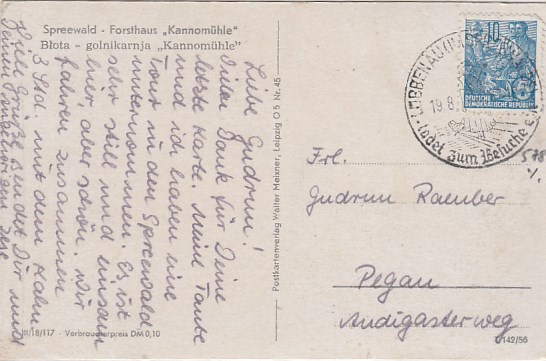 Spreewald - Forsthaus „Kannomühle"
Błota - golnikarnja „Kannomühle"
Liebe Gudrun!
Vielen Dank für Deine
letzte Karte. Meine Tante
und ich haben eine
Tour in den Spreewald
unternommen. Es ist
sehr still und einsam
hier, aber schön. Wir
fahren zusammen
3 Std. mit dem Kahn
Viele Grüße sendet Dir und
Deinen
Postkartenverlag Walter Meixner, Leipzig O 5 Nr. 45
10
DEUTSCHE
DEMOKRATISCHE REPUBLIK
LÜBBENAU
19.8.
ladet zum Besuche ein
578
Frl.
Gudrun Raeuber
Pegau
Andigasterweg
III/18/117 - Verbraucherpreis DM 0,10
142/56